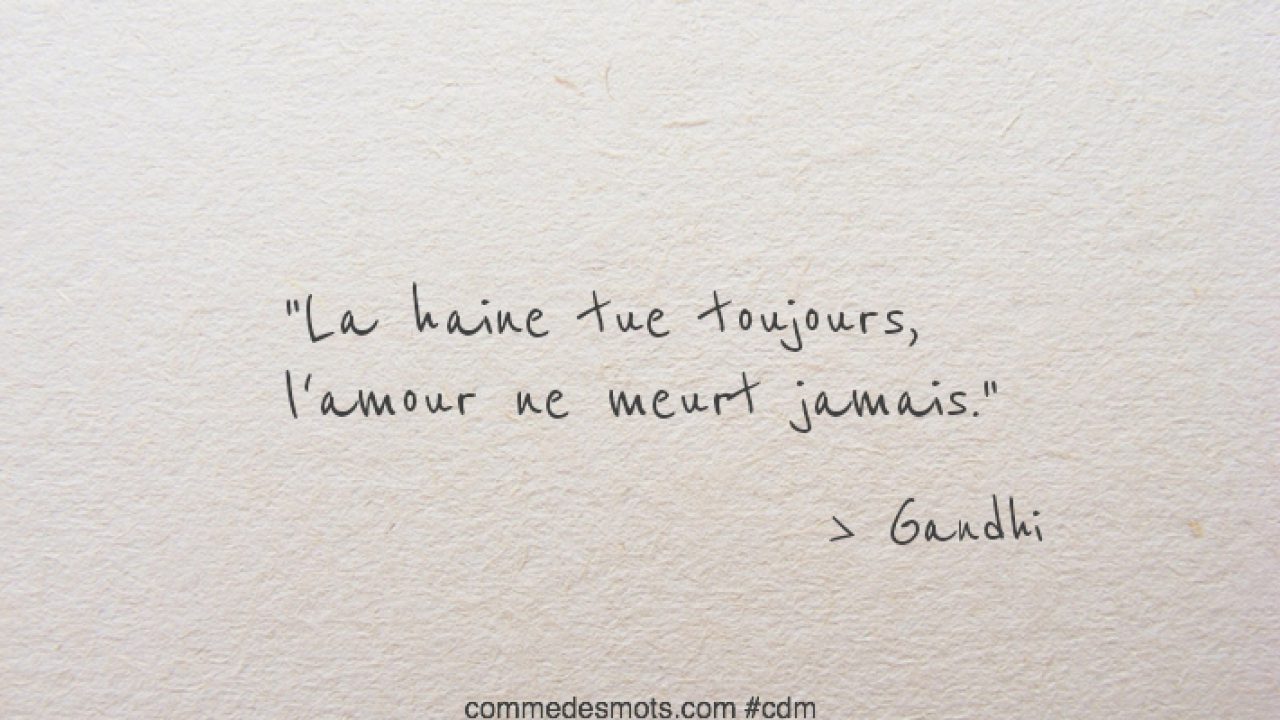 "La haine tue toujours,
l'amour ne meurt jamais."
> Gandhi
commedesmots.com #cdm